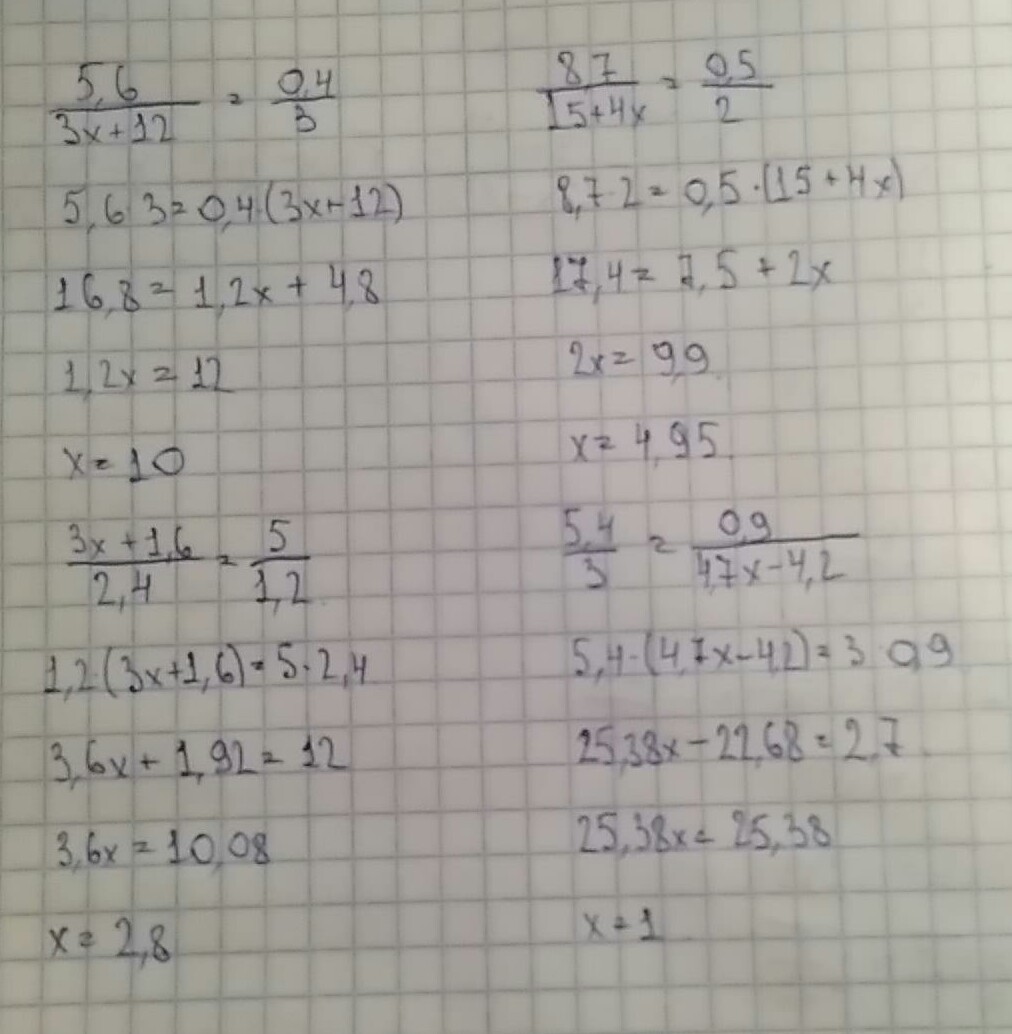 5,6/(3x+12) = 0,4/3
5,6 3 = 0,4·(3x+12)
16,8 = 1,2x + 4,8
1,2x = 12
x = 10
8,7/(15+4x) = 0,5/2
8,7 2 = 0,5·(15+4x)
17,4 = 7,5 + 2x
2x = 9,9
x = 4,95
(3x+1,6)/2,4 = 5/1,2
1,2·(3x+1,6) = 5·2,4
3,6x + 1,92 = 12
3,6x = 10,08
x = 2,8
5,4/3 = 0,9/(4,7x-4,2)
5,4·(4,7x-4,2) = 3 0,9
25,38x - 22,68 = 2,7
25,38x = 25,38
x = 1